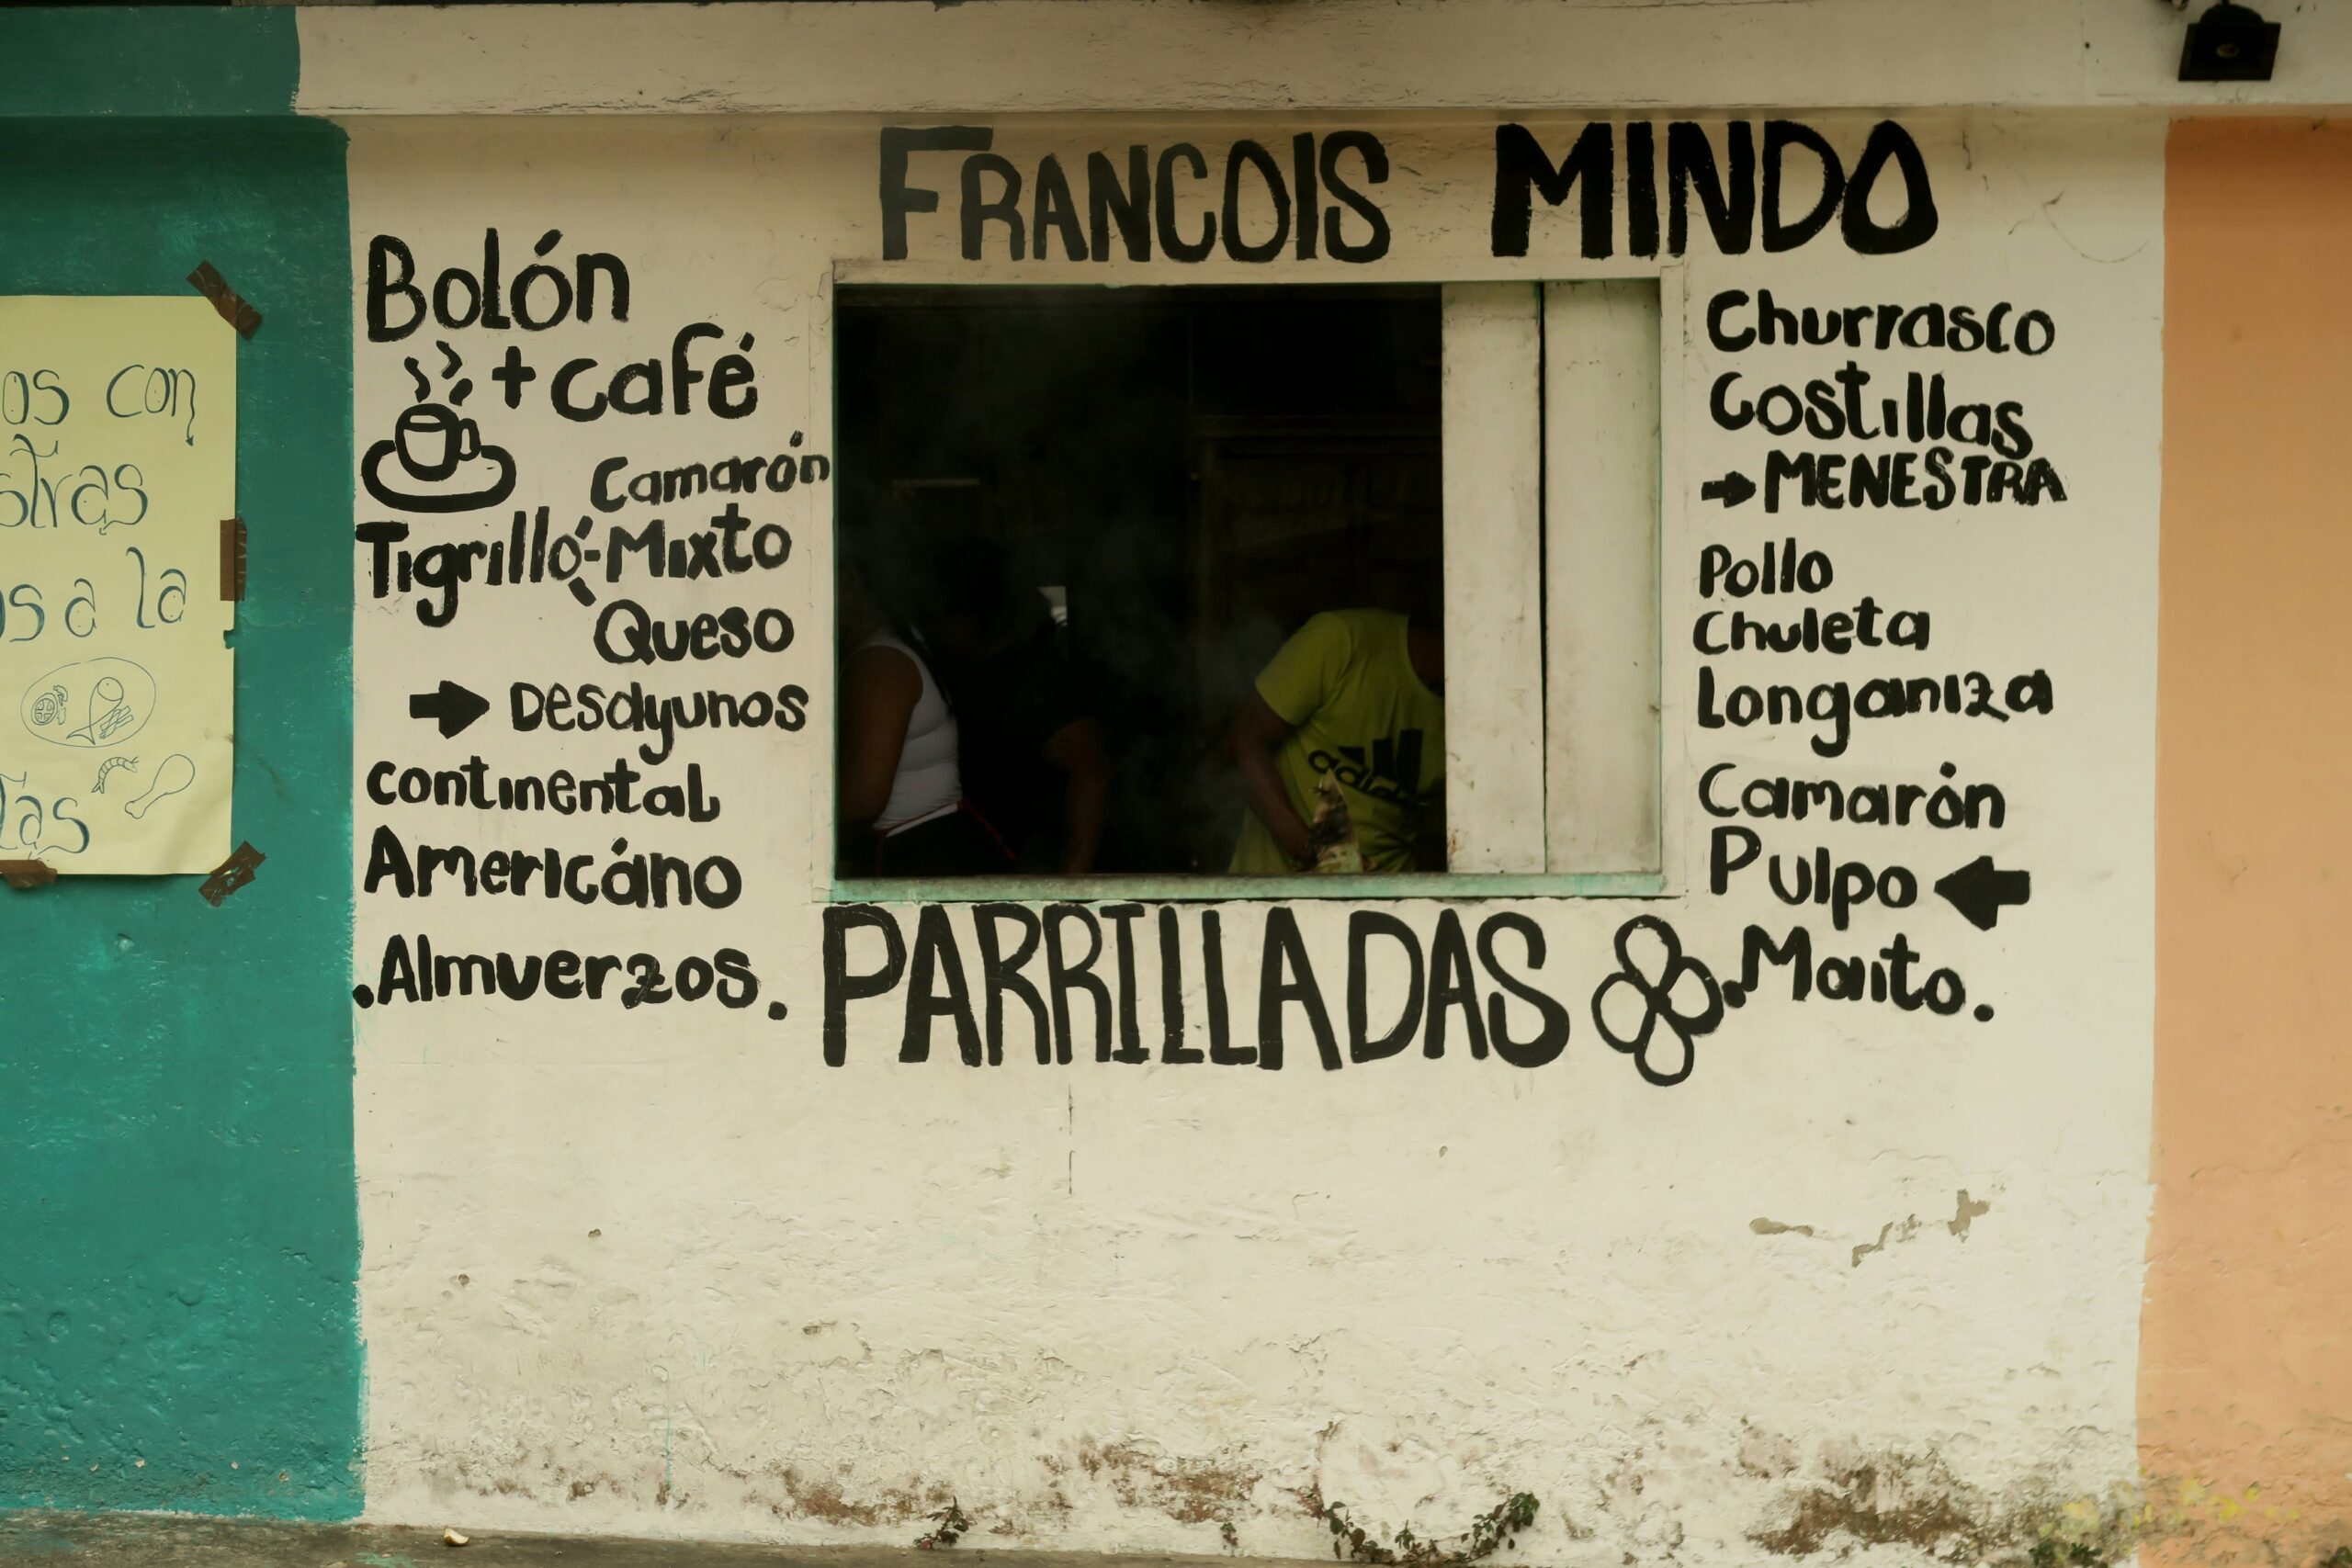 FRANCOIS MINDO
Bolón
+ café
Camarón
Tigrillo - Mixto
Queso
Desayunos
continental
Americáno
.Almuerzos.
Churrasco
Costillas
MENESTRA
Pollo
Chuleta
Longaniza
Camarón
Pulpo
.Maito.
PARRILLADAS
adidas
os con
stras
os a la